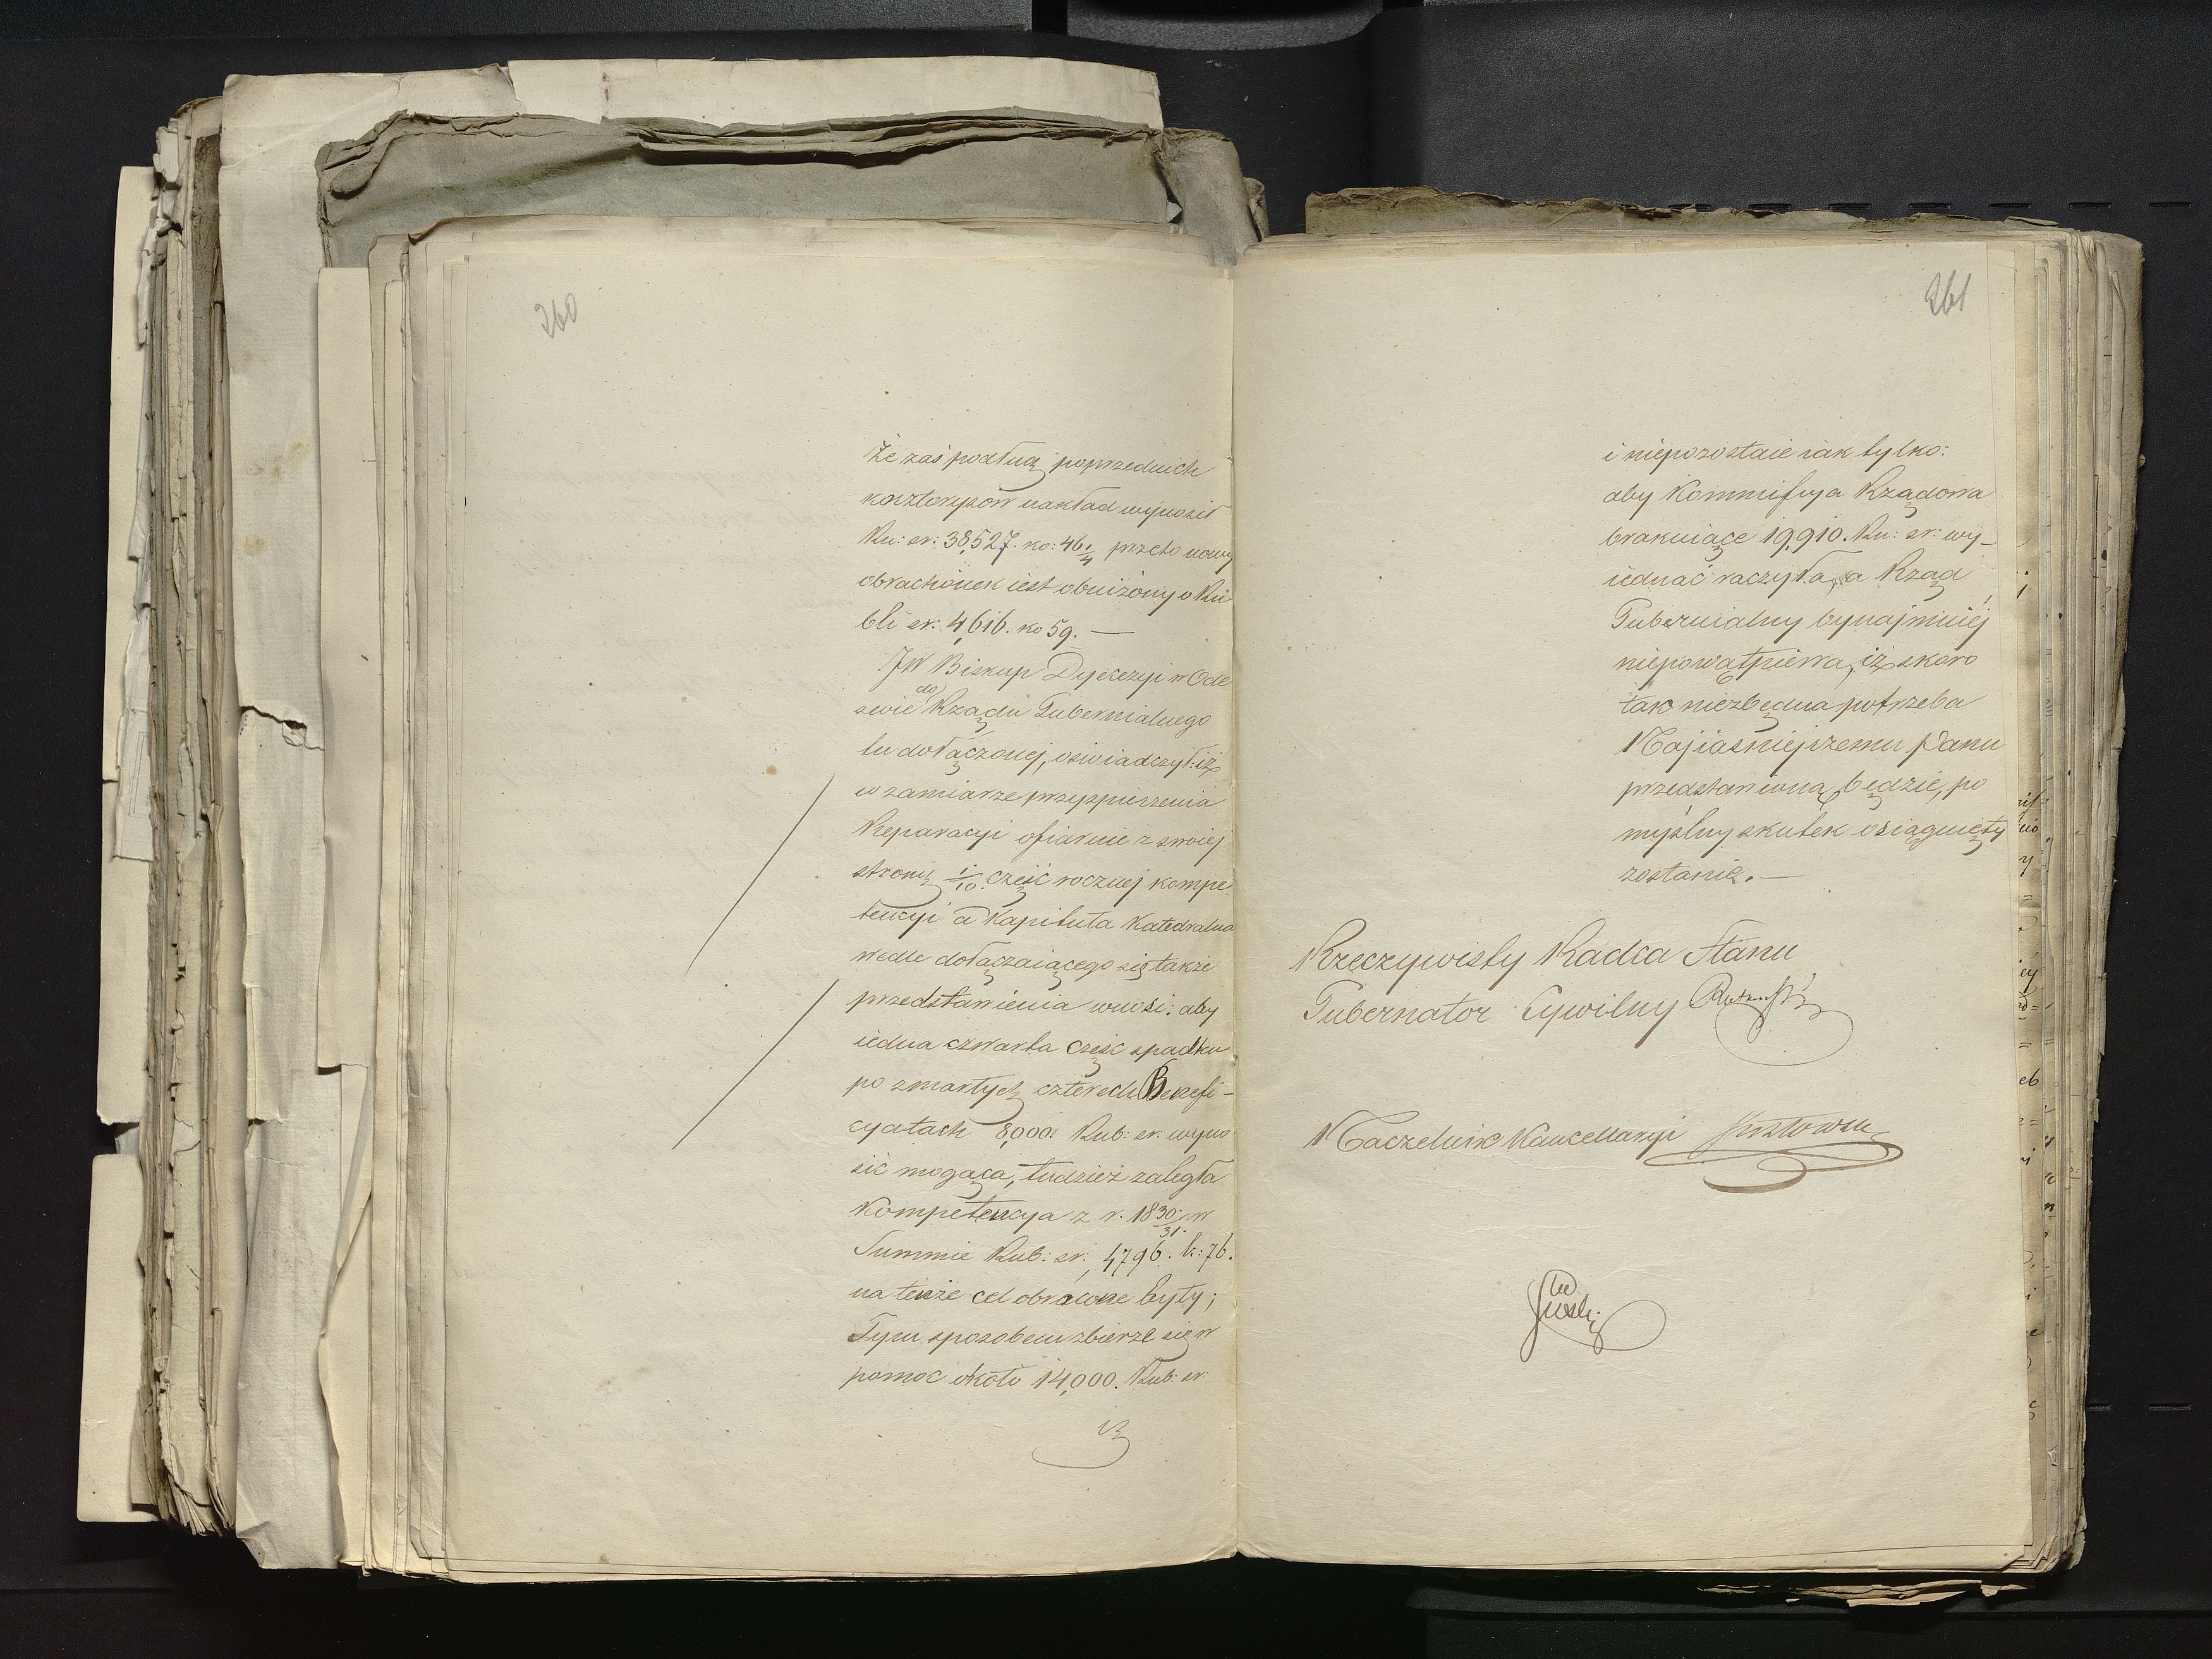 260
Że zaś podług poprzednich
kosztorysów nakład wynosił
Ru: sr: 38,527. ko: 46 1/4 przeto nowy
obrachónek iest obniżony o Ru
bli sr: 4,616. ko 59. —
JW Biskup Dyecezyi w Ode
zwie do Rządu Gubernialnego
tu dołączonej, oświadczył: iż
w zamiarze przyspieszenia
Reparacyi ofiaruie z swoiej
strony 1/10. część rocznej kompe
tencyi a Kapituła Katedralna
wedle dołączaiącego się także
przedstawienia wnosi: aby
iedna czwarta część spadku
po zmarłych czterech Benefi-
cyatach 8,000. Rub: sr. wyno
sić mogąca, tudzież zaległa
Kompetencya z r. 1830/31. w
Summie Rub: sr: 4,796. k: 76.
na tenże cel obrócone były;
Tym sposobem zbierze się w
pomoc około 14,000. Rub: sr
261
i niepozostaie iak tylko:
aby Kommissya Rządowa
brakuiące 19,910. Ru: sr: wy-
iednać raczyła, a Rząd
Gubernialny bynajmniéj
niepowątpiewa, iż skoro
tak niezbędna potrzeba
Najiaśniejszemu Panu
przedstawioną będzie, po
myślny skutek osiągnięty
zostanie. —
Rzeczywisty Radca Stanu
Gubernator Cywilny
Naczelnik Kancellaryi